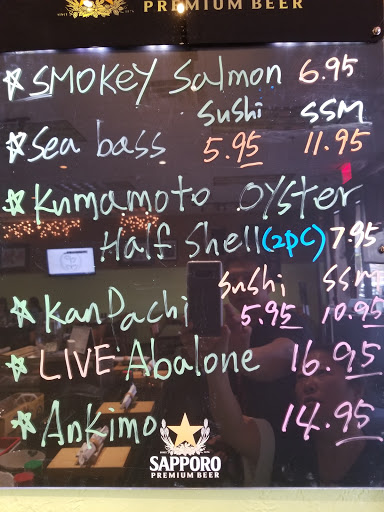 PREMIUM BEER
☆ SMOKEY Salmon 6.95
Sushi SSM
☆ Sea bass 5.95 11.95
☆ Kumamoto OYSTER
Half Shell (2PC) 7.95
Sushi SSM
☆ KanPachi 5.95 10.95
☆ LIVE Abalone 16.95
☆ Ankimo 14.95
SAPPORO
PREMIUM BEER